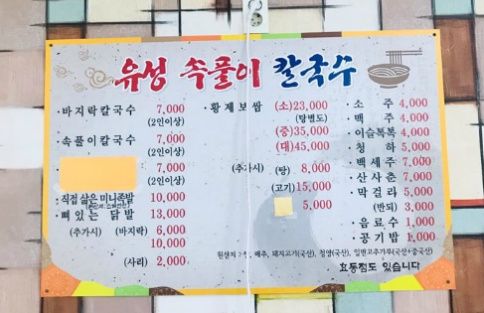 유성 속풀이 칼국수
·바지락칼국수 7,000
(2인이상)
·속풀이칼국수 7,000
(2인이상)
7,000
(2인이상)
·직접 삶은 미니족발 10,000
·뼈있는 닭발 13,000
(추가시) (바지락) 6,000
10,000
(사리) 2,000
·황제보쌈 (소)23,000
(탕별도)
(중)35,000
(대)45,000
(추가시) (탕) 8,000
(고기)15,000
5,000
·소주 4,000
·맥주 4,000
·이슬톡톡 4,000
·청하 5,000
·백세주 7,000
·산사춘 7,000
·막걸리 5,000
(반되) 3,000
·음료수 1,000
·공기밥 1,000
배추, 돼지고기(국산), 일반고추가루(국산+중국산)
있습니다